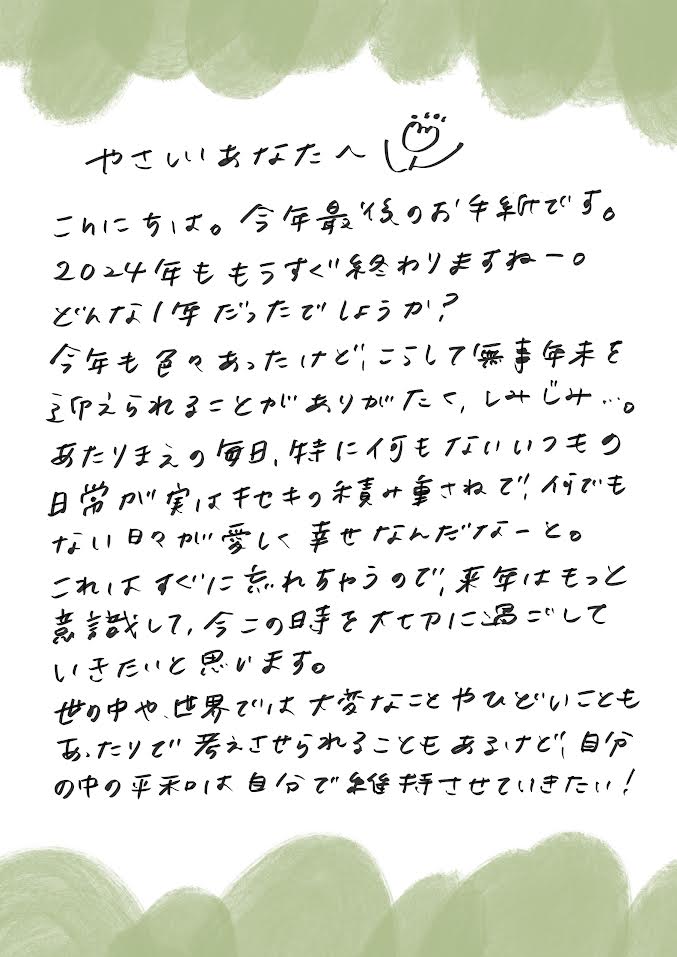 やさしいあなたへ
こんにちは。今年最後のお手紙です。
2024年ももうすぐ終わりますねー。
どんな1年だったでしょうか?
今年も色々あったけど、こうして無事年末を
迎えられることがありがたく、しみじみ…。
あたりまえの毎日、特に何もないいつもの
日常が実はキセキの積み重さねで、何でも
ない日々が愛しく幸せなんだなーと。
これはすぐに忘れちゃうので、来年はもっと
意識して、今この時を大切に過ごして
いきたいと思います。
世の中や、世界では大変なことやひどいことも
あったりで考えさせられることもあるけど、自分
の中の平和は自分で維持させていきたい!